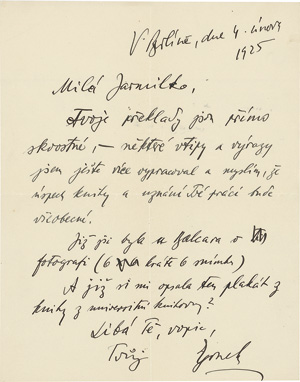 V Bílině, dne 4. února
1925
Milá Jarmilko,
Tvoje překlady jsou přímo
skvostné, – některé vtipy a výrazy
jsem ještě více vypracoval a myslím, že
úspěch knihy a uznání Tvé práce bude
všeobecné.
Již jsi byla u Balcara o
fotografii (6 kráte 6 snímků)
A již si mi opsala ten plakát z
knihy z universitní knihovny?
Líbá Tě, vopic,
Tvůj